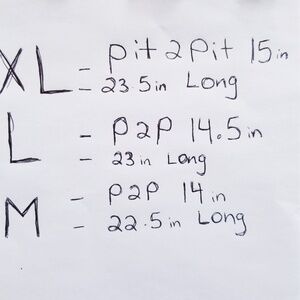 XL = pit 2 pit 15 in
= 23.5 in Long
L - p2p 14.5 in
- 23 in Long
M - p2p 14 in
- 22.5 in Long